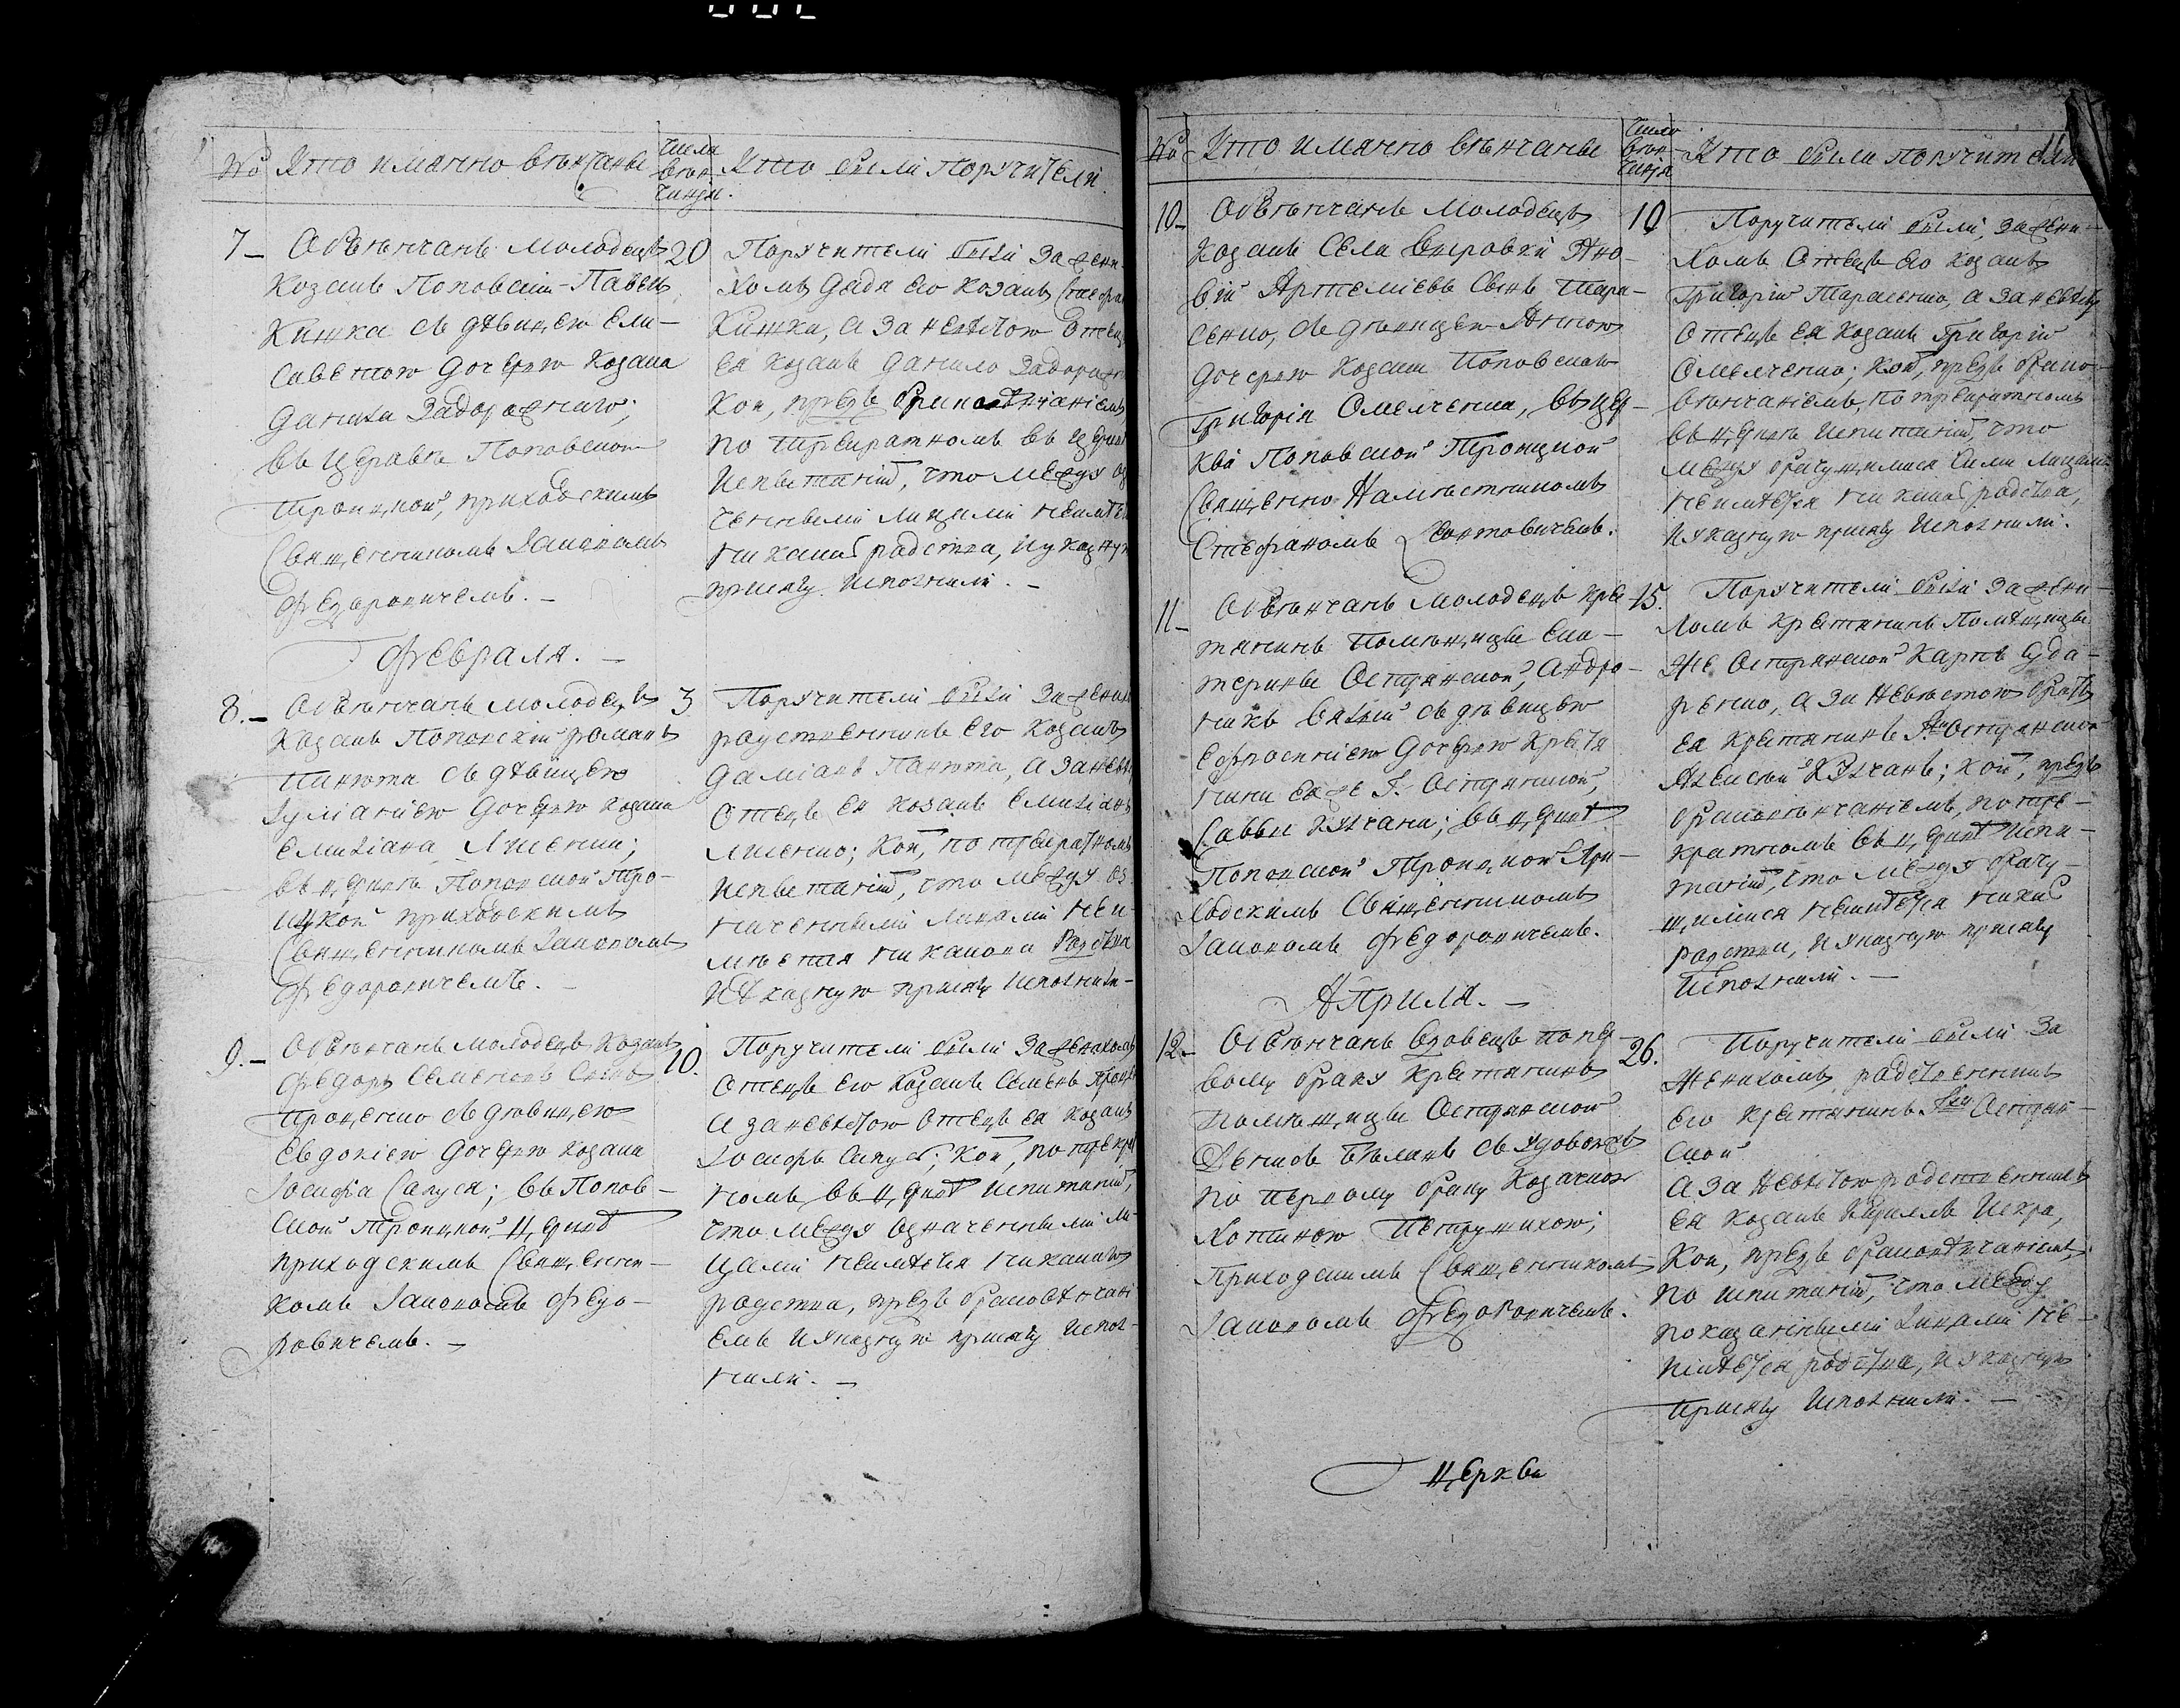 № Кто имянно венчаны
Числа венчанїя.
Кто были Поручители.
7 Обвѣнчанъ молодецъ
Козакъ Поповскій Павелъ
Кишка съ дѣвицею Ели-
саветою дочерею козака
Данила Задорожнаго;
въ церквѣ Поповской
Троицкой, приходскимъ
Священникомъ Іаковомъ
Федоровичемъ.
20
Поручители были за жени-
хомъ дядя его козакъ
Кишка, а за невѣстою Отецъ
ея козакъ Данило
кои, предъ браковѣнчаніемъ
по трекратномъ въ церкви
испытаніи, что между
ченными лицами неимѣется
никакого родства, и указную
присягу исполнили.
Февраля.
8. Обвѣнчанъ молодецъ
козакъ Поповскій Романъ
Панюта съ дѣвицею
Іуліаніею дочерею козака
Емиліана Лисенка;
въ церквѣ Поповской Тро-
ицкой приходскимъ
Священникомъ Іаковомъ
Федоровичемъ.
3
Поручители были за женихомъ
родственникъ его козакъ
Даміанъ Панюта, а за
Отецъ ея козакъ Емиліанъ
Лисенко; кои, по трекратномъ
испытаніи, что между оз-
наченными лицами неи-
мѣется никакова родства
и указную присягу исполнили
9. Обвѣнчанъ молодецъ козакъ
Федоръ Семеновъ Сынъ
Проценко съ дѣвицею
Евдокіею дочерею козака
Іосифа Сапуся; въ Попов-
ской Троицкой церквѣ
приходскимъ Священни-
комъ Іаковомъ Федо-
ровичемъ.
10.
Поручители были за женихомъ
Отецъ его козакъ Семенъ
а за невѣстою Отецъ ея козакъ
Іосифъ Сапусь; кои, по трекрат
номъ въ церквѣ испытаніи,
что между означенными ли-
цами неимѣется никакого
родства, предъ браковѣнчані-
емъ и указную присягу испол-
нили.
№ Кто имянно венчаны
Число венчанїя
Кто были поручители
10 Обвѣнчанъ молодецъ
козакъ села
Артеміевъ Сынъ Тара-
сенко, съ дѣвицею Анною
дочерею козака Поповского
Григорія Омелченка, въ цер-
кви Поповской Троицкой
Священно Намѣстникомъ
Стефаномъ
10
Поручители были, за жени-
хомъ Отецъ его козакъ
Григорій Тарасенко, а за невѣсту
Отецъ ея козакъ Григорій
Омелченко; кои, предъ брако-
вѣнчаніемъ, по трекратномъ
въ церквѣ испытаніи, что
между брачущимися сими лицами
неимѣется никакого родства,
и указную присягу исполнили.
11 Обвѣнчанъ молодецъ кре-
тянинъ Помѣщицы Ека-
терины Остранской, Андро-
никъ съ дѣвицею
Ефросиніею дочерею крестя
нина ея же Г. Остранской,
Саввы Кулчана; въ церквѣ
Поповской Троицкой при-
ходскимъ Священникомъ
Іаковомъ Федоровичемъ.
15.
Поручители были за жени-
хомъ крестянинъ Помѣщицы
же Остранской Карпъ Уда-
ренко, а за невѣстою братъ
ея крестянинъ Остранской
Кулчанъ; кои, предъ
браковѣнчаніемъ, по тре-
кратномъ въ церквѣ испы-
таніи, что между брачу-
щимися неимѣется
родства, и указную присягу
исполнили.
Априля.
12. Обвѣнчанъ Вдовецъ по пер-
вому браку крестянинъ
помѣщицы Остранской
съ удовою
по первому браку козачкою
Петрунихою;
Приходскимъ Священникомъ
Іаковомъ Федоровичемъ.
26.
Поручители были за
женихомъ родственникъ
его крестянинъ Остран-
ской
а за невѣстою родственникъ
ея козакъ Кириллъ Искра,
кои, предъ браковѣнчаніемъ,
по испытаніи, что между
показанными лицами не-
имѣется родства, и указную
присягу исполнили.
церкви